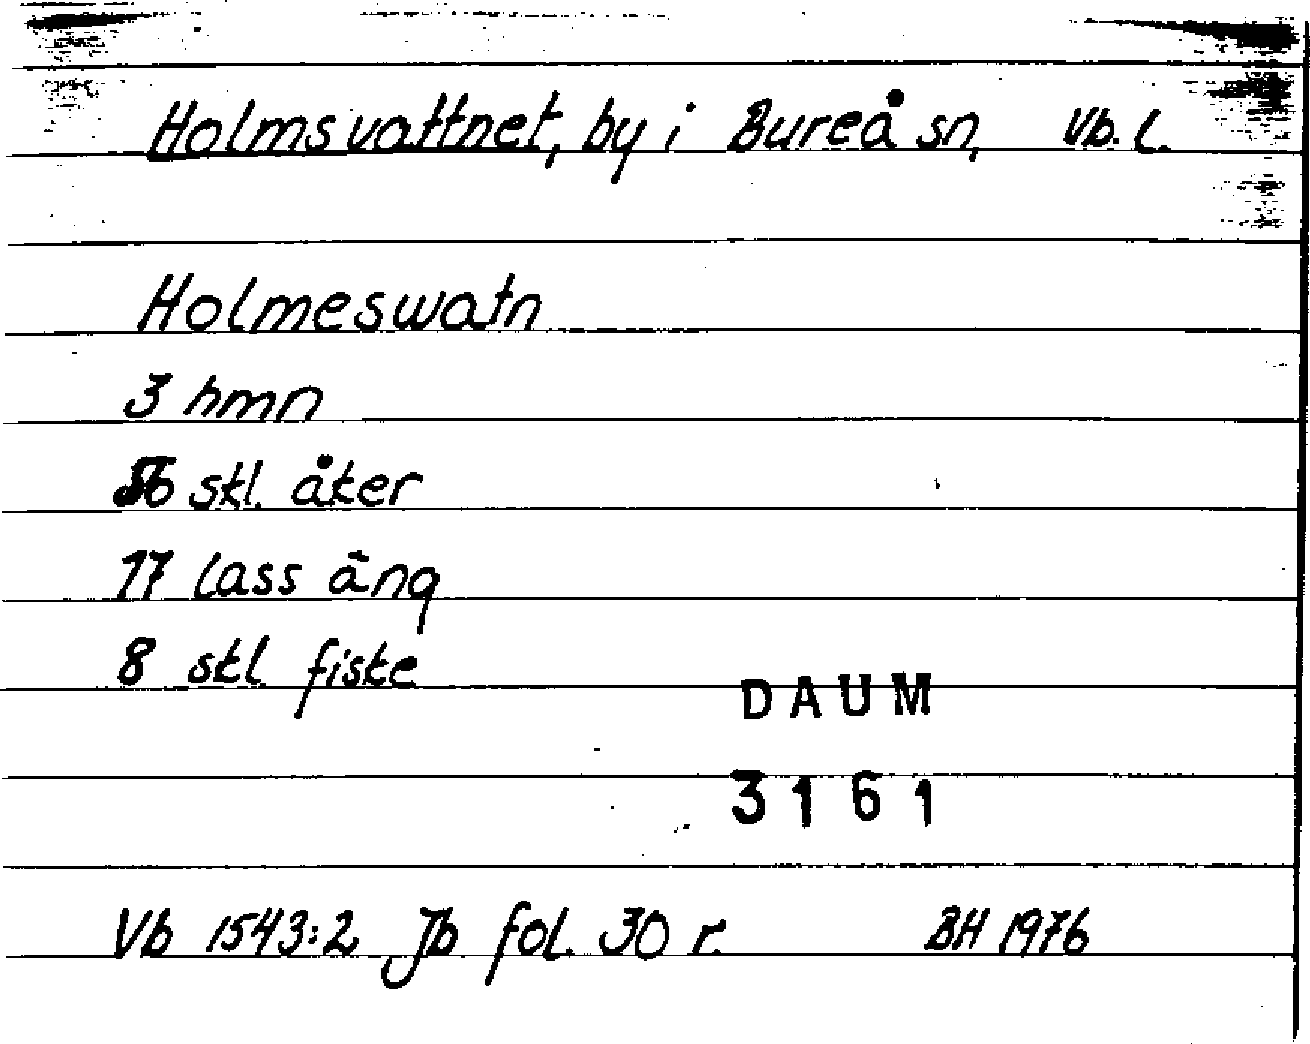 Holmsvattnet, by i Bureå sn, Vb. l.
Holmeswatn
3 hmn
56 skl. åker
17 lass äng
8 skl fiske
DAUM
3161
Vb 1543:2 Jb fol. 30 r. BH 1976